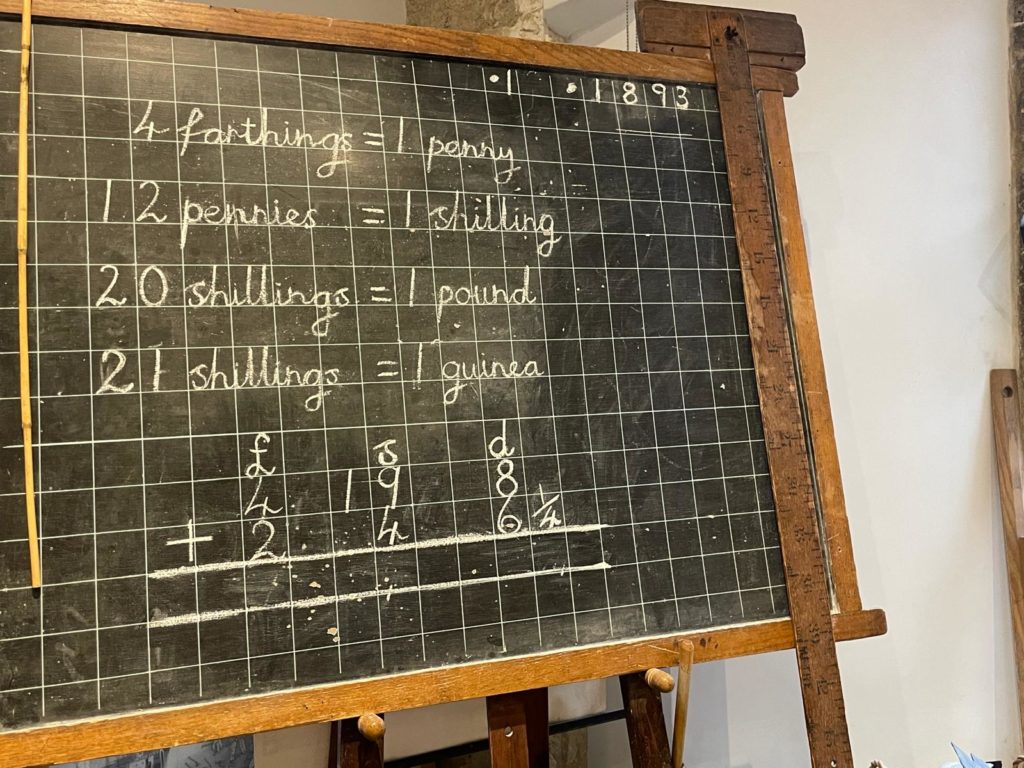 .1 .1893
4 farthings = 1 penny
12 pennies = 1 shilling
20 shillings = 1 pound
21 shillings = 1 guinea
£ s d
4 19 8
+ 2 4 6 1/4